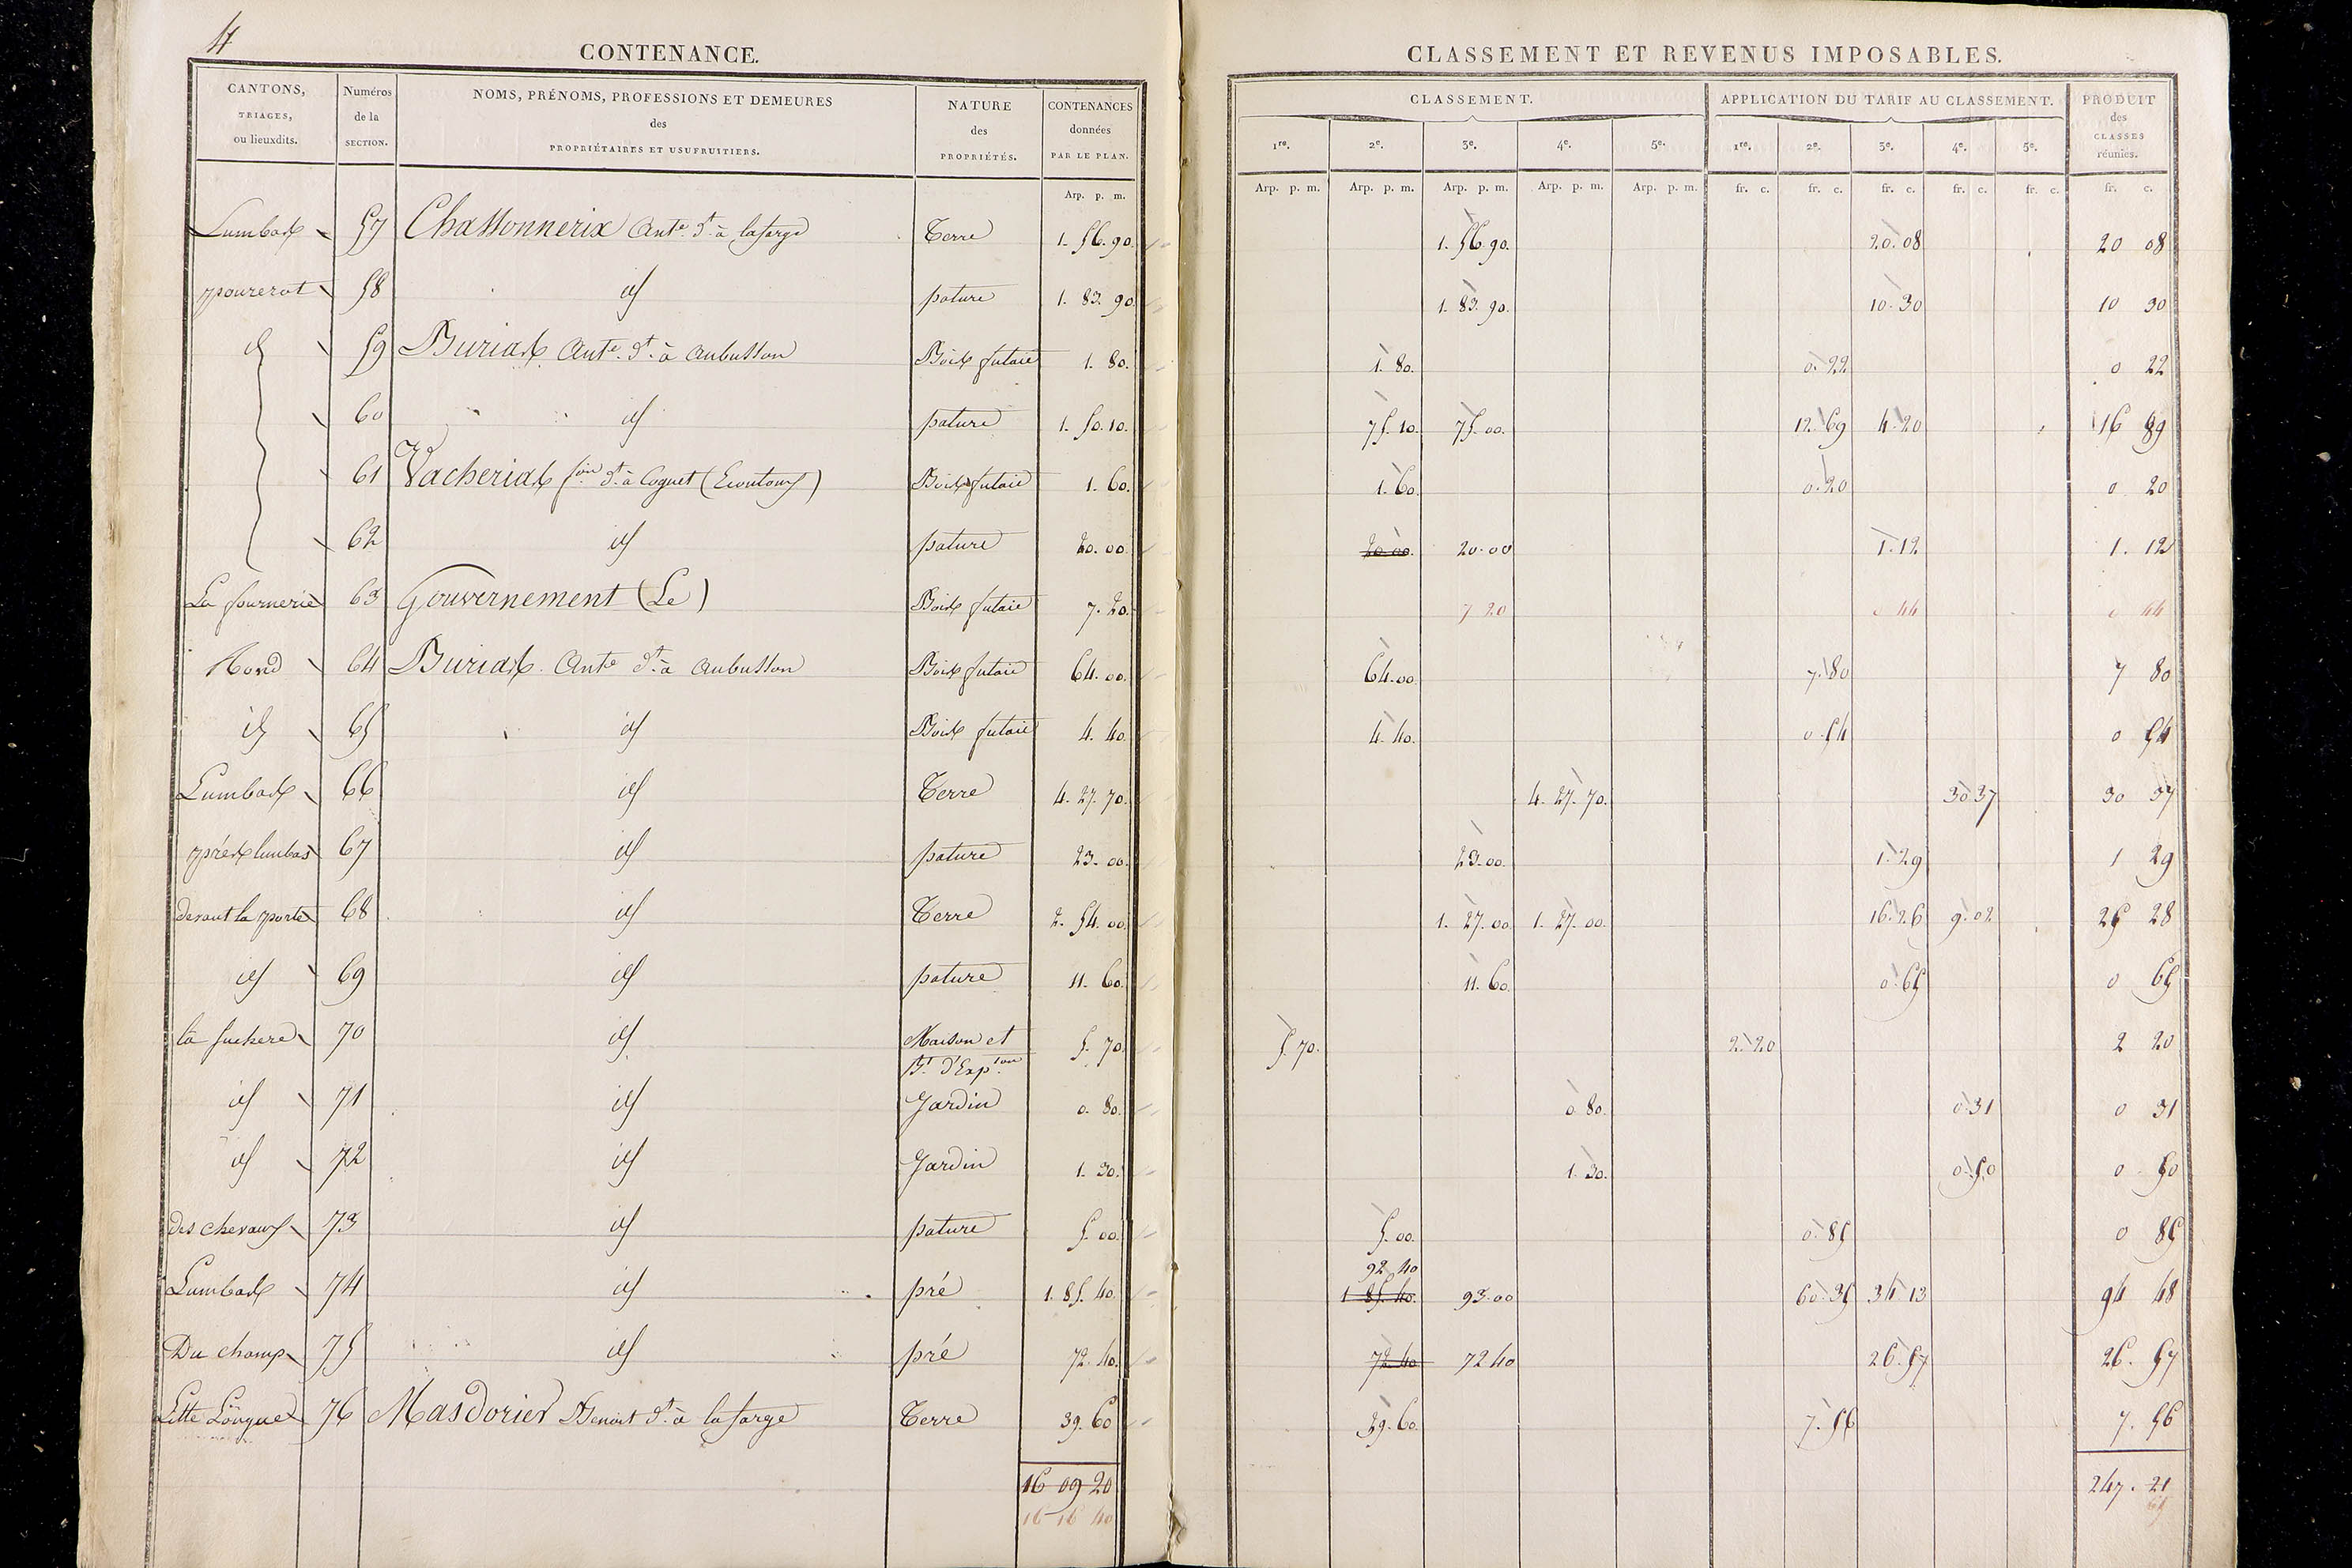 4
CONTENANCE.
CANTONS, TRIAGES, ou lieuxdits.
Numéros de la SECTION.
NOMS, PRÉNOMS, PROFESSIONS ET DEMEURES des PROPRIÉTAIRES ET USUFRUITIERS.
NATURE des PROPRIÉTÉS.
CONTENANCES données PAR LE PLAN.
Arp. p. m.
CLASSEMENT ET REVENUS IMPOSABLES.
CLASSEMENT.
APPLICATION DU TARIF AU CLASSEMENT.
PRODUIT des CLASSES réunies.
1re. 2e. 3e. 4e. 5e. 1re. 2e. 3e. 4e. 5e.
Arp. p. m. Arp. p. m. Arp. p. m. Arp. p. m. Arp. p. m. fr. c. fr. c. fr. c. fr. c. fr. c. fr. c.
57 Ante. dt. à lafarge Terre 1. 56. 90. 1. 56. 90. 20. 08 20 08
58 id pature 1. 83. 90. 1. 83. 90. 10. 30 10 30
id 59 Ante. dt. à aubusson Bois futaie 1. 80. 1. 80. 0. 22 0 22
60 id pature 1. 50. 10. 75. 10. 75. 00. 12. 69 4. 20 16 89
61 dt. à Coguet Bois futaie 1. 60. 1. 60. 0. 20 0 20
62 id pature 20. 00. 20. 00. 20. 00 1. 12 1. 12
La fournerie 63 Gouvernement (Le) Bois futaie 7. 20. 7 20 0 44 0 44
64 Ante dt. à aubusson Bois futaie 64. 00. 64. 00. 7. 80 7 80
id 65 id Bois futaie 4. 40. 4. 40. 0. 54 0 54
66 id Terre 4. 27. 70. 4. 27. 70. 30 37 30 37
67 id pature 23. 00. 23. 00. 1. 29 1 29
devant la porte 68 id Terre 2. 54. 00. 1. 27. 00. 1. 27. 00. 16. 26 9. 02 25 28
id 69 id pature 11. 60. 11. 60. 0. 65 0 65
70 id Maison et 5. 70. 5. 70. 2. 20 2 20
Bt. d'Expton
id 71 id Jardin 0. 80. 0 80. 0. 31 0 31
id 72 id Jardin 1. 30. 1. 30. 0. 50 0 50
des chevaux 73 id pature 5. 00. 5. 00. 0. 85 0 85
92 40
74 id pré 1. 85. 40. 1 85. 40. 93. 00 60. 35 34 13 94 48
Du champ 75 id pré 72. 40. 72 40 72 40 26. 57 26. 57
76 Masdorier Benoit dt. à lafarge Terre 39. 60 39. 60. 7. 56 7. 56
16 09 20 247. 21
16 16 40